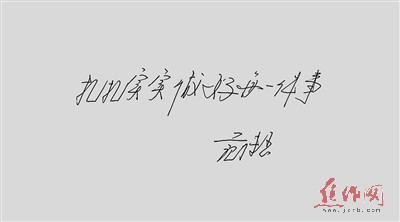 扎扎实实做好每一件事
焦作网
www.jzrb.com